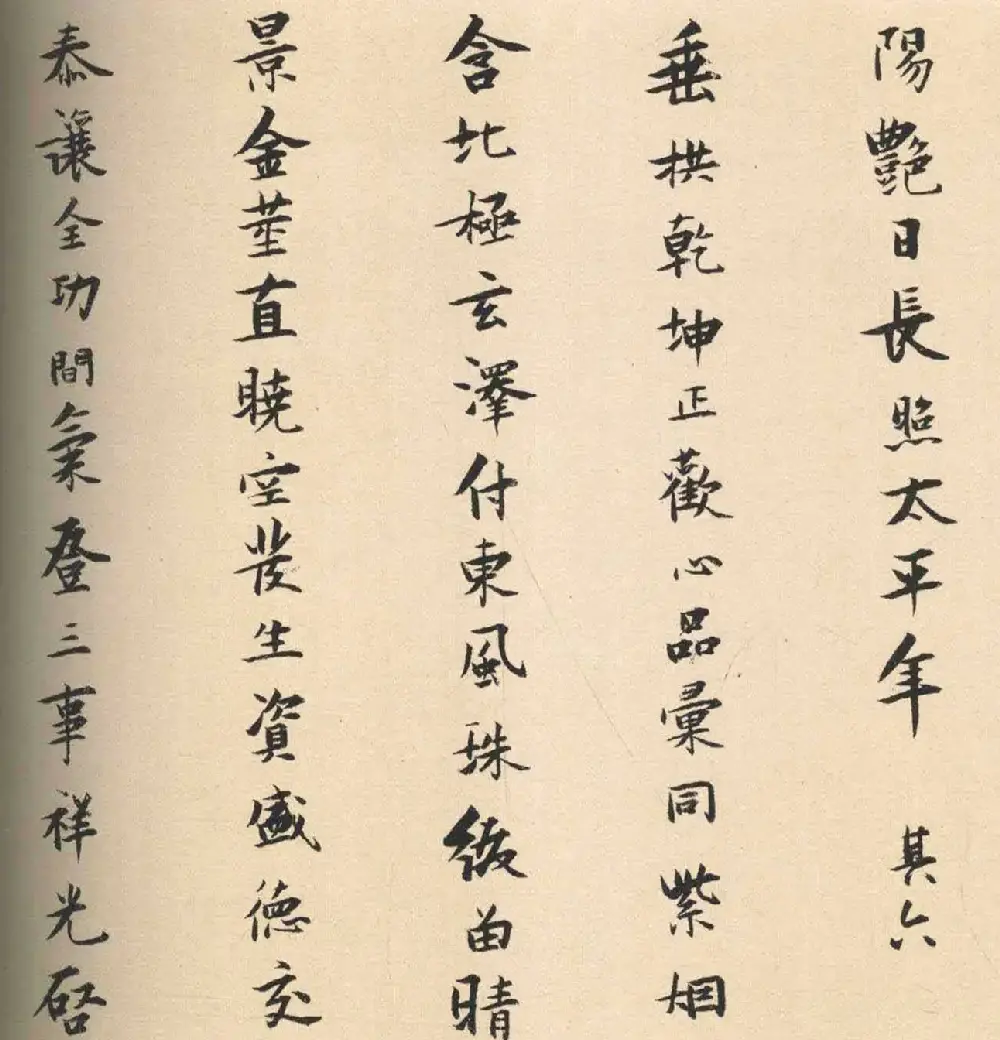 陽艷日長照太平年　其六
垂拱乾坤正歡心品彙同紫烟
含北極玄澤付東風珠綴留晴
景金莖直曉空發生資盛德交
泰讓全功間氣登三事祥光啓